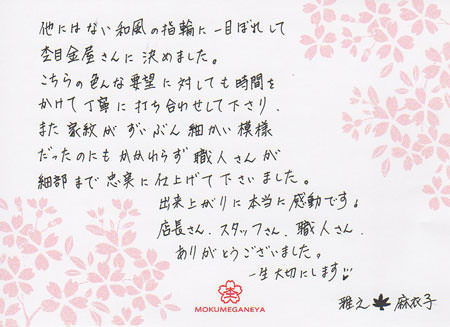 他にはない和風の指輪に一目ぼれして
杢目金屋さんに決めました。
こちらの色んな要望に対しても時間を
かけて丁寧に打ち合わせして下さり、
また家紋がずいぶん細かい模様
だったのにもかかわらず職人さんが
細部まで忠実に仕上げて下さいました。
出来上がりに本当に感動です。
店長さん、スタッフさん、職人さん、
ありがとうございました。
一生大切にします♡
雅之 🍁 麻衣子
MOKUMEGANEYA